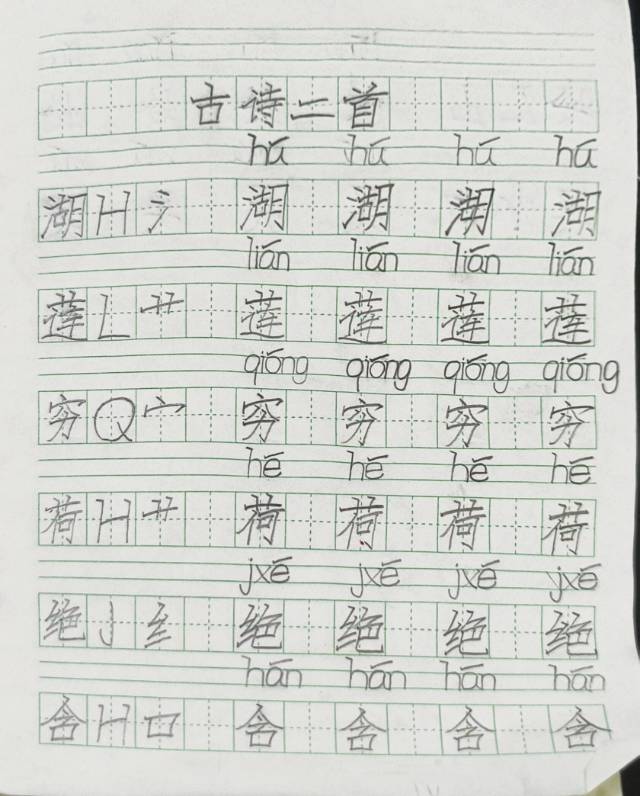 古诗二首
hú hú hú hú
湖 H 氵 湖 湖 湖 湖
lián lián lián lián
莲 L 艹 莲 莲 莲 莲
qióng qióng qióng qióng
穷 Q 宀 穷 穷 穷 穷
hé hé hé hé
荷 H 艹 荷 荷 荷 荷
jxé jxé jxé jxé
绝 J 纟 绝 绝 绝 绝
hán hán hán hán
含 H 口 含 含 含 含